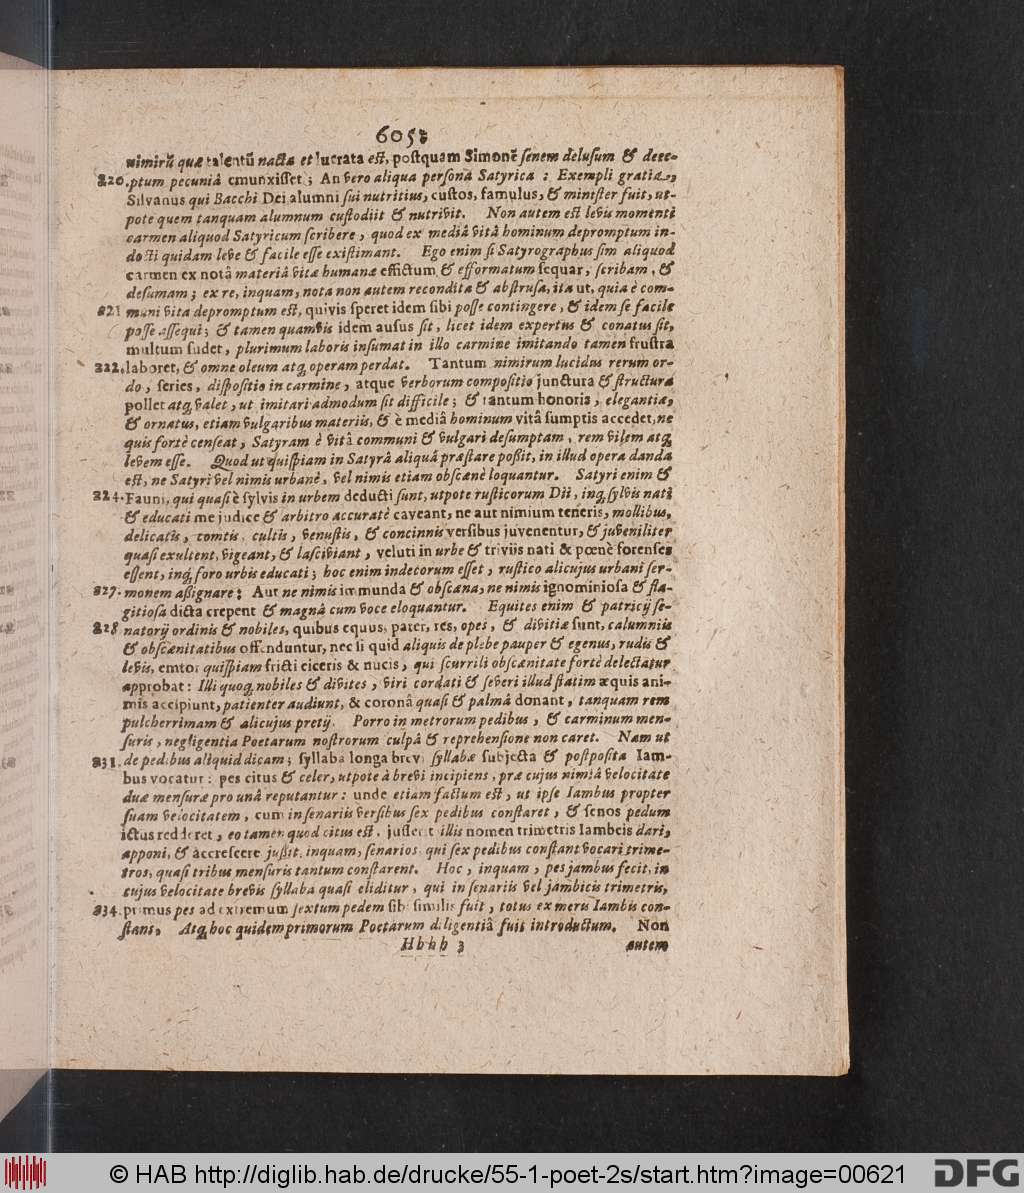 605
nimirũ quæ talentũ nacta et lucrata est, postquam Simonẽ senem delusum & dece-
220. ptum pecuniâ emunxisset; An vero aliqua persona Satyrica: Exempli gratia,
Silvanus qui Bacchi Dei alumni sui nutritius, custos, famulus, & minister fuit, ut-
pote quem tanquam alumnum custodiit & nutrivit. Non autem est levis momenti
carmen aliquod Satyricum scribere, quod ex mediâ vitâ hominum depromptum in-
docti quidam leve & facile esse existimant. Ego enim si Satyrographus sim aliquod
carmen ex notâ materiâ vitæ humanæ effictum & efformatum sequar, scribam, &
desumam; ex re, inquam, nota non autem recondita & abstrusa, ita ut, quia è com-
221 muni vita depromptum est, quivis speret idem sibi posse contingere, & idem se facile
posse assequi; & tamen quamvis idem ausus sit, licet idem expertus & conatus sit,
multum sudet, plurimum laboris insumat in illo carmine imitando tamen frustra
222. laboret, & omne oleum atq; operam perdat. Tantum nimirum lucidus rerum or-
do, series, dispositio in carmine, atque verborum compositio junctura & structura
pollet atq; valet, ut imitari admodum sit difficile; & tantum honoris, elegantiæ,
& ornatus, etiam vulgaribus materiis, & è mediâ hominum vitâ sumptis accedet, ne
quis fortè censeat, Satyram è vitâ communi & vulgari desumptam, rem vilem atq;
levem esse. Quod ut quispiam in Satyrâ aliquâ præstare poßit, in illud opera danda
est, ne Satyri vel nimis urbanè, vel nimis etiam obscænè loquantur. Satyri enim &
224. Fauni, qui quasi è sylvis in urbem deducti sunt, utpote rusticorum Dii, inq; sylvis nati
& educati me judice & arbitro accuratè caveant, ne aut nimium teneris, mollibus,
delicatis, comtis, cultis, venustis, & concinnis versibus juvenentur, & juveniliter
quasi exultent, vigeant, & lasciviant, veluti in urbe & triviis nati & pœnè forenses
essent, inq; foro urbis educati; hoc enim indecorum esset, rustico alicujus urbani ser-
227. monem aßignare: Aut ne nimis immunda & obscæna, ne nimis ignominiosa & fla-
gitiosa dicta crepent & magnâ cum voce eloquantur. Equites enim & patricij se-
228 natorij ordinis & nobiles, quibus equus, pater, res, opes, & divitiæ sunt, calumniis
& obscænitatibus offenduntur, nec si quid aliquis de plebe pauper & egenus, rudis &
levis, emtor quispiam fricti ciceris & nucis, qui scurrili obscænitate fortè delectatur
approbat: Illi quoq; nobiles & divites, viri cordati & severi illud statim æquis ani-
mis accipiunt, patienter audiunt, & coronâ quasi & palmâ donant, tanquam rem
pulcherrimam & alicujus pretij. Porro in metrorum pedibus, & carminum men-
suris, negligentia Poetarum nostrorum culpâ & reprehensione non caret. Nam ut
231. de pedibus aliquid dicam; syllaba longa brevi syllabæ subjecta & postposita Iam-
bus vocatur: pes citus & celer, utpote à brevi incipiens, præ cujus nimiâ velocitate
duæ mensuræ pro unâ reputantur: unde etiam factum est, ut ipse Iambus propter
suam velocitatem, cum in senariis versibus sex pedibus constaret, & senos pedum
ictus redderet, eo tamen quod citus est, jusserit illis nomen trimetris Iambeis dari,
apponi, & accrescere jußit, inquam, senarios, qui sex pedibus constant vocari trime-
tros, quasi tribus mensuris tantum constarent. Hoc, inquam, pes jambus fecit, in
cujus velocitate brevis syllaba quasi eliditur, qui in senariis vel jambicis trimetris,
234. primus pes ad extremum sextum pedem sibi similis fuit, totus ex meris Iambis con-
stans. Atq; hoc quidem primorum Poetarum diligentiâ fuit introductum. Non
Hhhh 3 autem
© HAB http://diglib.hab.de/drucke/55-1-poet-2s/start.htm?image=00621
DFG